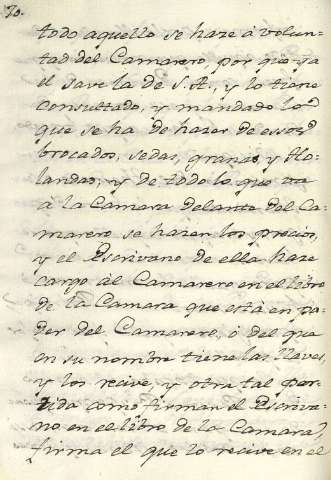 70.
todo aquello se haze à volun-
tad del Camarero, por que ya
el save la de S. A., y lo tiene
consultado, y mandado lo
que se ha de hazer de essos
brocados, sedas, granas y Ho-
landas, y de todo lo que va
à la Camara delante del Ca-
marero se hazen los precios,
y el Escrivano de ella haze
cargo àl Camarero en el libro
de la Camara que està en po-
der del Camarero, ò del que
en su nombre tiene las llaves,
y los recive, y otra tal par-
tida como firman el Escriva-
no en el libro de la Camara,
firma el que lo recive en el